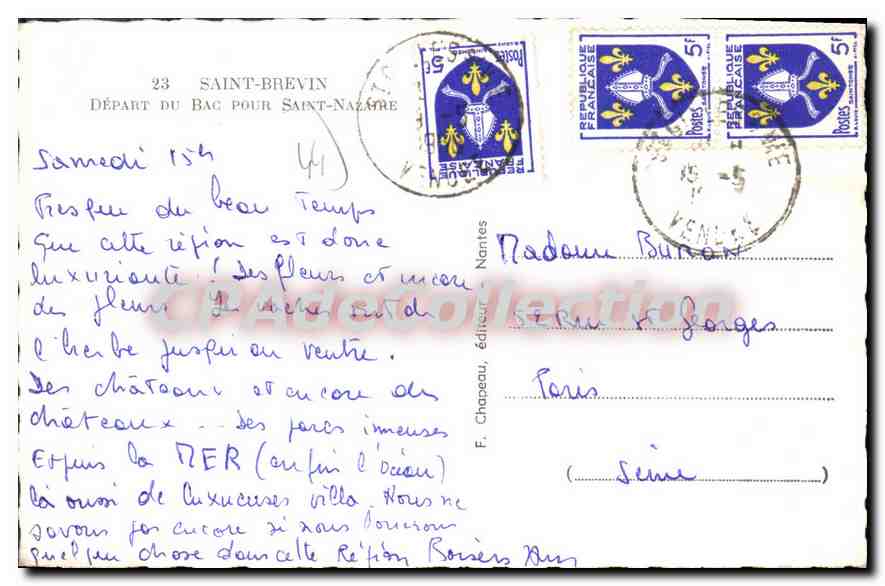 23 SAINT-BREVIN
DÉPART DU BAC POUR SAINT-NAZAIRE
44
Samedi 15h
Presque du beau Temps
Que cette région est donc
luxuriante ! Des fleurs et encore
des fleurs Les vaches ont de
l'herbe jusqu'au ventre.
Des châteaux et encore des
châteaux .. Des parcs immenses
Et puis la MER (enfin l'océan)
là aussi de luxueuses villa. Nous ne
savons pas encore si nous louerons
quelque chose dans cette Région Baisers
F. Chapeau, éditeur - Nantes
Madame BURON
St Georges
Paris
(Seine)
RÉPUBLIQUE FRANÇAISE
5F
Postes
SAINTONGE
RÉPUBLIQUE FRANÇAISE
5F
Postes
SAINTONGE
5F
15 -5
VENDÉE
CPAdeCollection